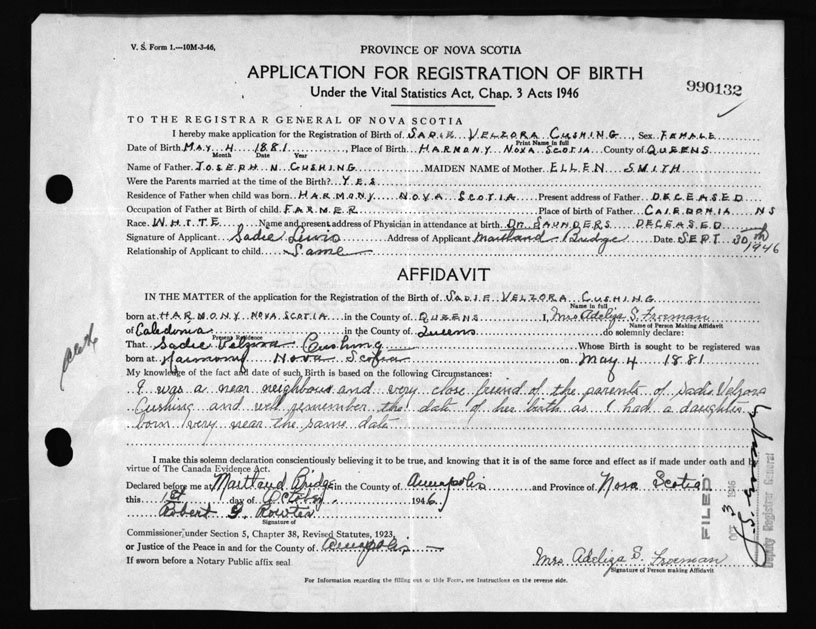 V. S. Form 1.—10M-3-46.
PROVINCE OF NOVA SCOTIA
APPLICATION FOR REGISTRATION OF BIRTH
990132
Under the Vital Statistics Act, Chap. 3 Acts 1946
TO THE REGISTRAR GENERAL OF NOVA SCOTIA
I hereby make application for the Registration of Birth of SADIE VELZORA CUSHING, Sex FEMALE
Print Name in full
Date of Birth MAY 4 1881, Place of Birth HARMONY NOVA SCOTIA County of QUEENS
Month Date Year
Name of Father JOSEPH N CUSHING MAIDEN NAME of Mother ELLEN SMITH
Were the Parents married at the time of the Birth? YES
Residence of Father when child was born HARMONY NOVA SCOTIA Present address of Father DECEASED
Occupation of Father at Birth of child FARMER Place of birth of Father CALEDONIA NS
Race WHITE Name and present address of Physician in attendance at birth DR SAUNDERS DECEASED
Signature of Applicant Sadie Lewis Address of Applicant Maitland Bridge Date SEPT 30th 1946
Relationship of Applicant to child Same
AFFIDAVIT
IN THE MATTER of the application for the Registration of the Birth of SADIE VELZORA CUSHING
Name in full
born at HARMONY NOVA SCOTIA in the County of QUEENS I, Mrs Adeliza S. Freeman
Name of Person Making Affidavit
of Caledonia in the County of Queens do solemnly declare:
Present Residence
That Sadie Velzora Cushing Whose Birth is sought to be registered was
born at Harmony Nova Scotia on May 4 1881
My knowledge of the fact and date of such Birth is based on the following Circumstances:
I was a near neighbour and very close friend of the parents of Sadie Velzora
Cushing and well remember the date of her birth as I had a daughter
born very near the same date
I make this solemn declaration conscientiously believing it to be true, and knowing that it is of the same force and effect as if made under oath and by
virtue of The Canada Evidence Act.
Declared before me at Maitland Bridge in the County of Annapolis and Province of Nova Scotia
this 1st day of October 1946
Robert G. Rowter
Signature of
Commissioner under Section 5, Chapter 38, Revised Statutes, 1923,
or Justice of the Peace in and for the County of Annapolis
If sworn before a Notary Public affix seal
Mrs Adeliza S. Freeman
Signature of Person making Affidavit
For Information regarding the filling out of this Form, see Instructions on the reverse side.
FILED
OCT 3 1946
Deputy Registrar General